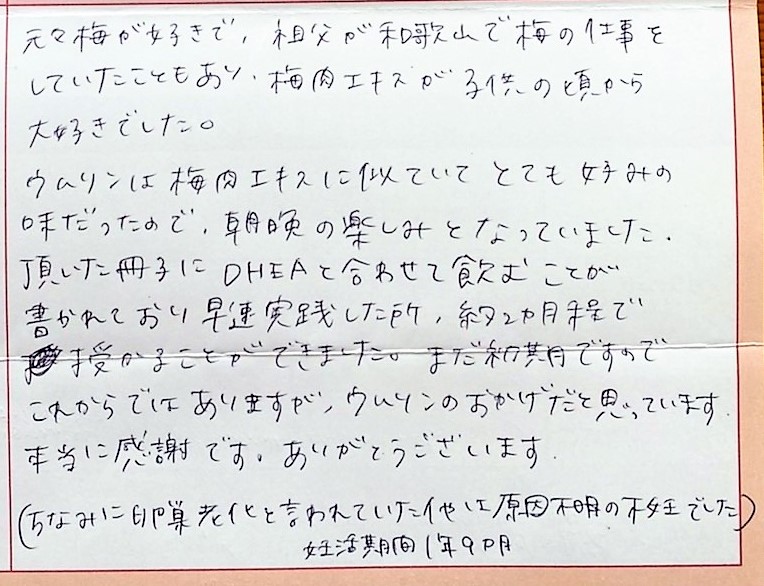 元々梅が好きで、祖父が和歌山で梅の仕事を
していたこともあり、梅肉エキスが子供の頃から
大好きでした。
ウムリンは梅肉エキスに似ていてとても好みの
味だったので、朝晩の楽しみとなっていました。
頂いた冊子にDHEAと合わせて飲むことが
書かれており早速実践した所、約2カ月程で
授かることができました。まだ初期ですので
これからではありますが、ウムリンのおかげだと思っています。
本当に感謝です。ありがとうございます。
(ちなみに卵巣老化と言われていた他は原因不明の不妊でした)
妊活期間1年9ヶ月